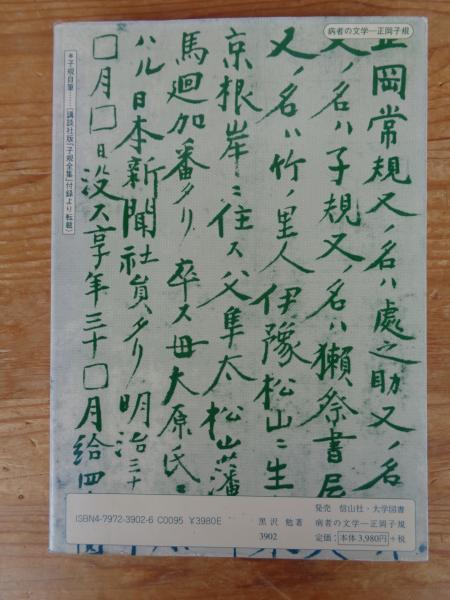 病者の文学―正岡子規
正岡常規又ノ名ハ處之助又ノ名
又ノ名ハ子規又ノ名ハ獺祭書屋
又ノ名ハ竹ノ里人伊豫松山ニ生
京根岸ニ住ス父隼太松山藩
馬廻加番タリ卒ス母大原氏ニ
ハル日本新聞社員タリ明治三十
□月□日没ス享年三十□月給四
*子規自筆……(講談社版「子規全集」付録より転載)
ISBN4-7972-3902-6 C0095 ¥3980E
黒沢 勉著
3902
発売 信山社・大学図書
病者の文学―正岡子規
定価:本体3,980円+税